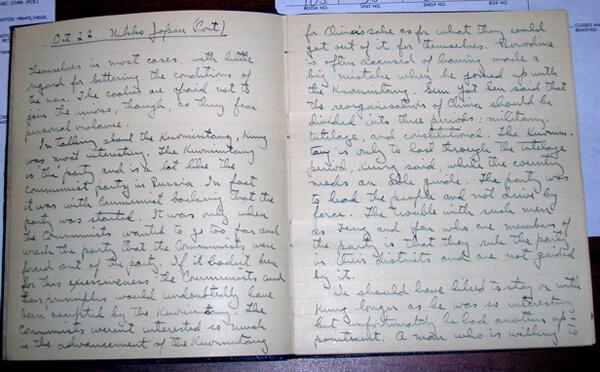 MISC. CORP. (PCS.)
ROOM NO.
SHELF NO.
CLOSED MA
REMOVED
Oct 22 Nikko Japan (Cont)
themselves in most cases, with little
regard for bettering the conditions of
the men. The coolies are afraid not to
join the unions, though, as they fear
personal violence.
In talking about the Kuomintang, Kung
was most interesting. The Kuomintang
is the party and is a lot like the
Communist party in Russia. In fact
it was with Communist backing that the
party was started. It was only when
the Communists wanted to go too far and
wreck the party that the Communists were
forced out of the party. If it hadn't been
for this excessiveness, the Communists and
their principles would undoubtedly have
been accepted by the Kuomintang. The
Communists weren't interested so much
in the advancement of the Kuomintang
for China's sake as for what they could
get out of it for themselves. Borodine
is often accused of having made a
big mistake when he joined up with
the Kuomintang. Sun Yat Sen said that
the reorganisation of China should be
divided into three periods: military,
tutelage, and constitutional. The Kuomin-
tang is only to last through the tutelage
period, Kung said, while the country
needs an able guide. The party was
to lead the people and not drive by
force. The trouble with such men
as Feng and Yen who are members of
the party is that they rule the party
in their districts and are not guided
by it.
We should have liked to stay on with
Kung longer as he was so interesting
but unfortunately he had another ap-
pointment. A man who is willing to